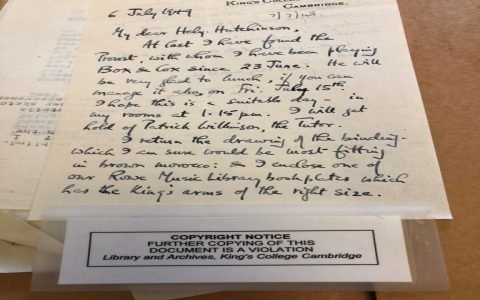 KING'S COLLEGE
CAMBRIDGE.
6 July 1949
7/7/49
My dear Hely-Hutchinson,
At last I have found the
Provost, with whom I have been playing
Box & Cox since 23 June. He will
be very glad to lunch, if you can
manage it also, on Fri. July 15th.
I hope this is a suitable day - in
my rooms at 1.15 p.m. I will get
hold of Patrick Wilkinson, the Tutor.
I return the drawing of the binding -
which I am sure would be most fitting
in brown morocco: & I enclose one of
our Rowe Music Library bookplates which
has the King's arms of the right size.
COPYRIGHT NOTICE
FURTHER COPYING OF THIS
DOCUMENT IS A VIOLATION
Library and Archives, King's College Cambridge